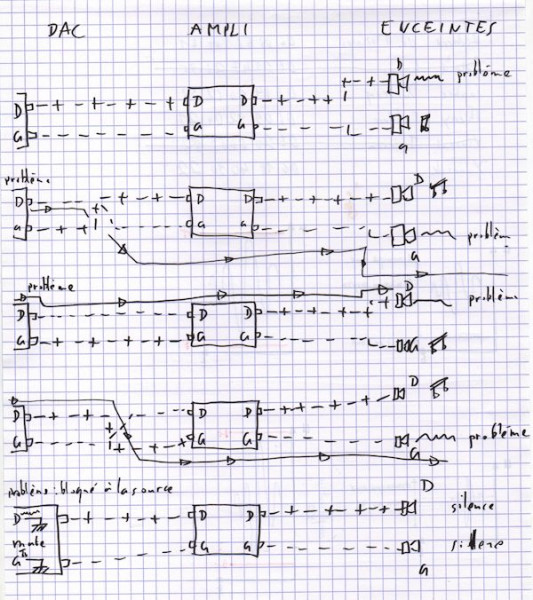 DAC AMPLI ENCEINTES
D
D D D problème
G G G
G
problème
D D D D
G G G problèm
G
problème
D
D D D problèm
G G G G
D
D D D
G G G problème
G
problème : bloqué à la source
D
D D D silence
mute
G G G silence
G